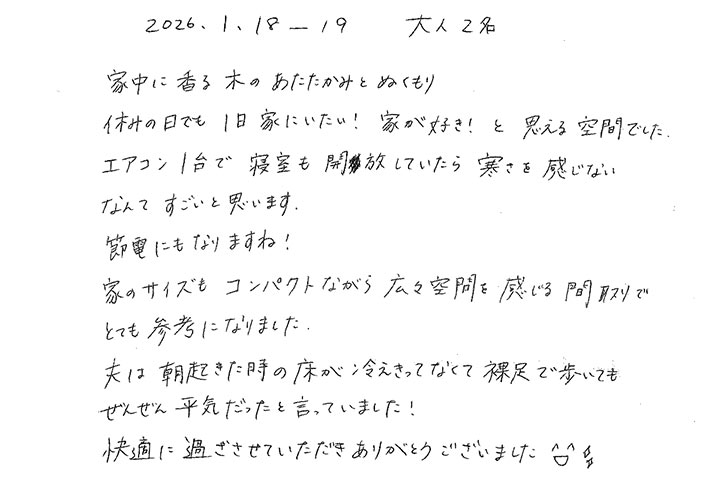 2026.1.18―19　大人2名
家中に香る木のあたたかみとぬくもり
休みの日でも1日家にいたい！家が好き！と思える空間でした.
エアコン1台で寝室も開放していたら寒さを感じない
なんてすごいと思います.
節電にもなりますね！
家のサイズもコンパクトながら広々空間を感じる間取りで
とても参考になりました.
夫は朝起きた時の床が冷えきってなくて裸足で歩いても
ぜんぜん平気だったと言っていました！
快適に過ごさせていただきありがとうございました